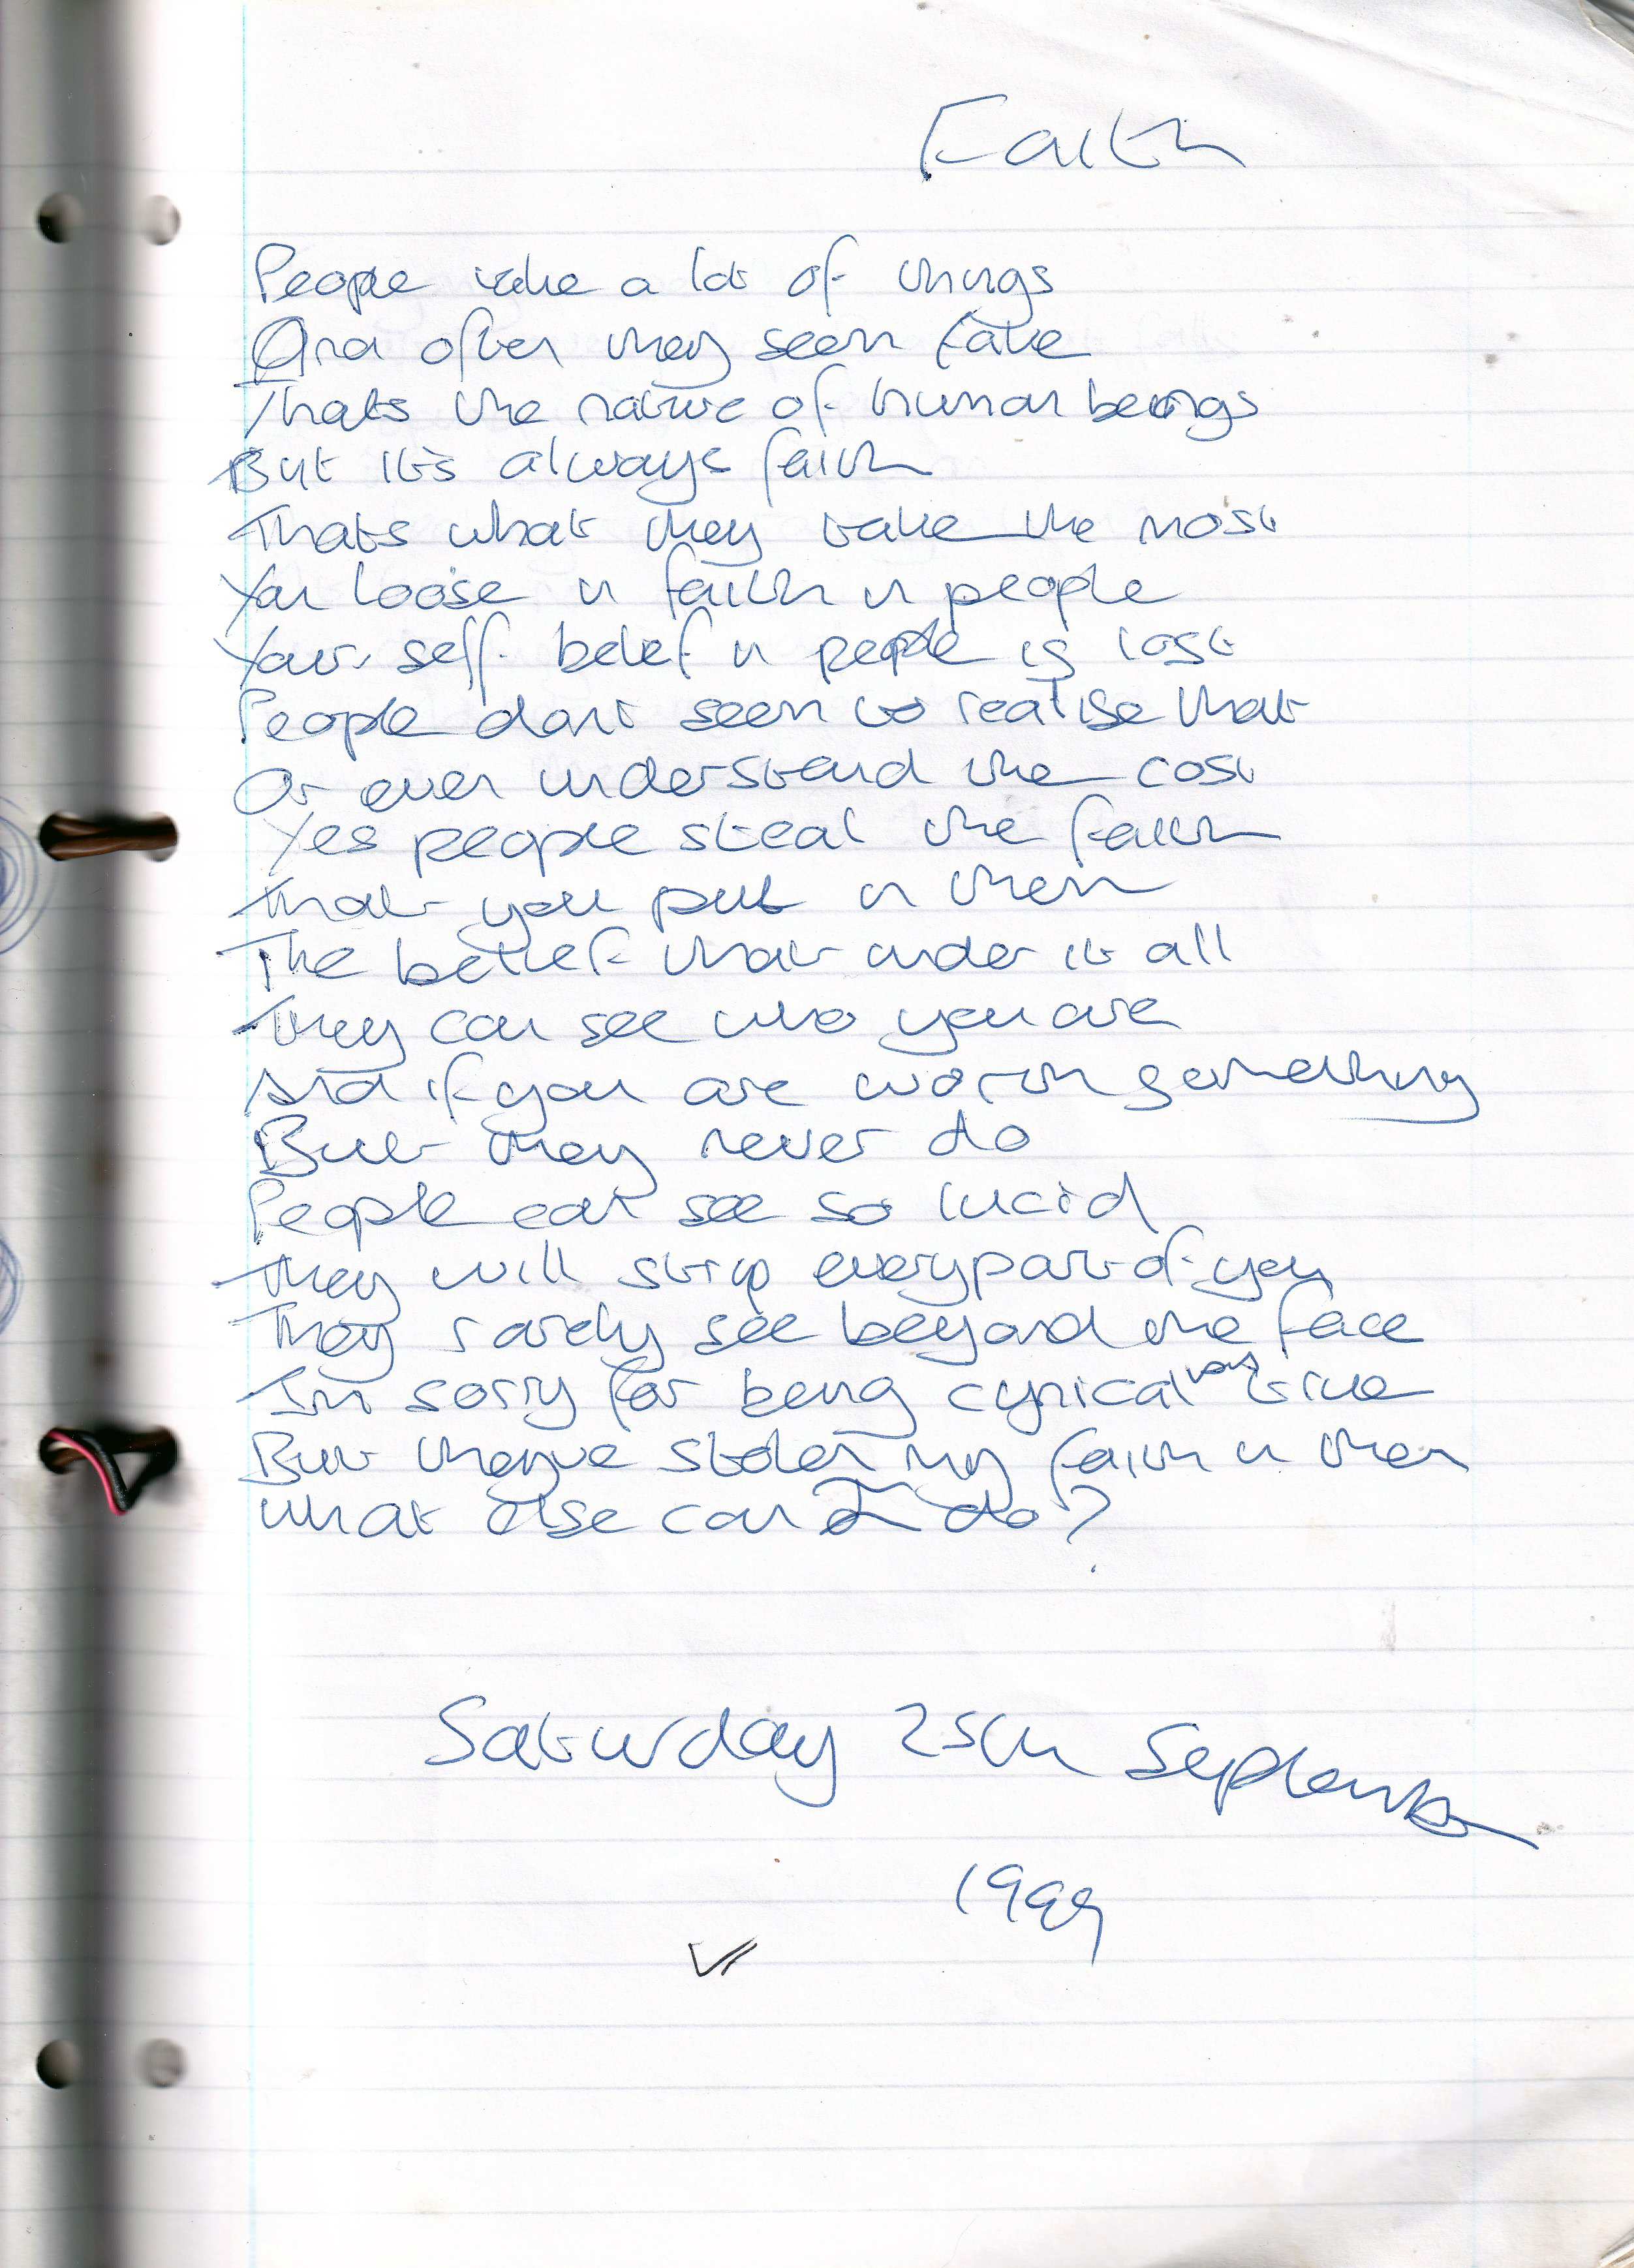 Faith
People take a lot of things
And often they seem fake
Thats the nature of human beings
But it's always faith
Thats what they take the most
You loose n faith n people
Your self belief n people is lost
People dont seem to realise that
Or even understand the cost
Yes people steal the faith
That you put n them
The belief that under it all
They can see who you are
And if you are worth something
But they never do
People eat see so lucid
They will strip every part of you
They rarely see beyond the face
Im sorry for being cynical way true
But theyve stolen my faith n them
What else can I do?
Saturday 25th September
1999